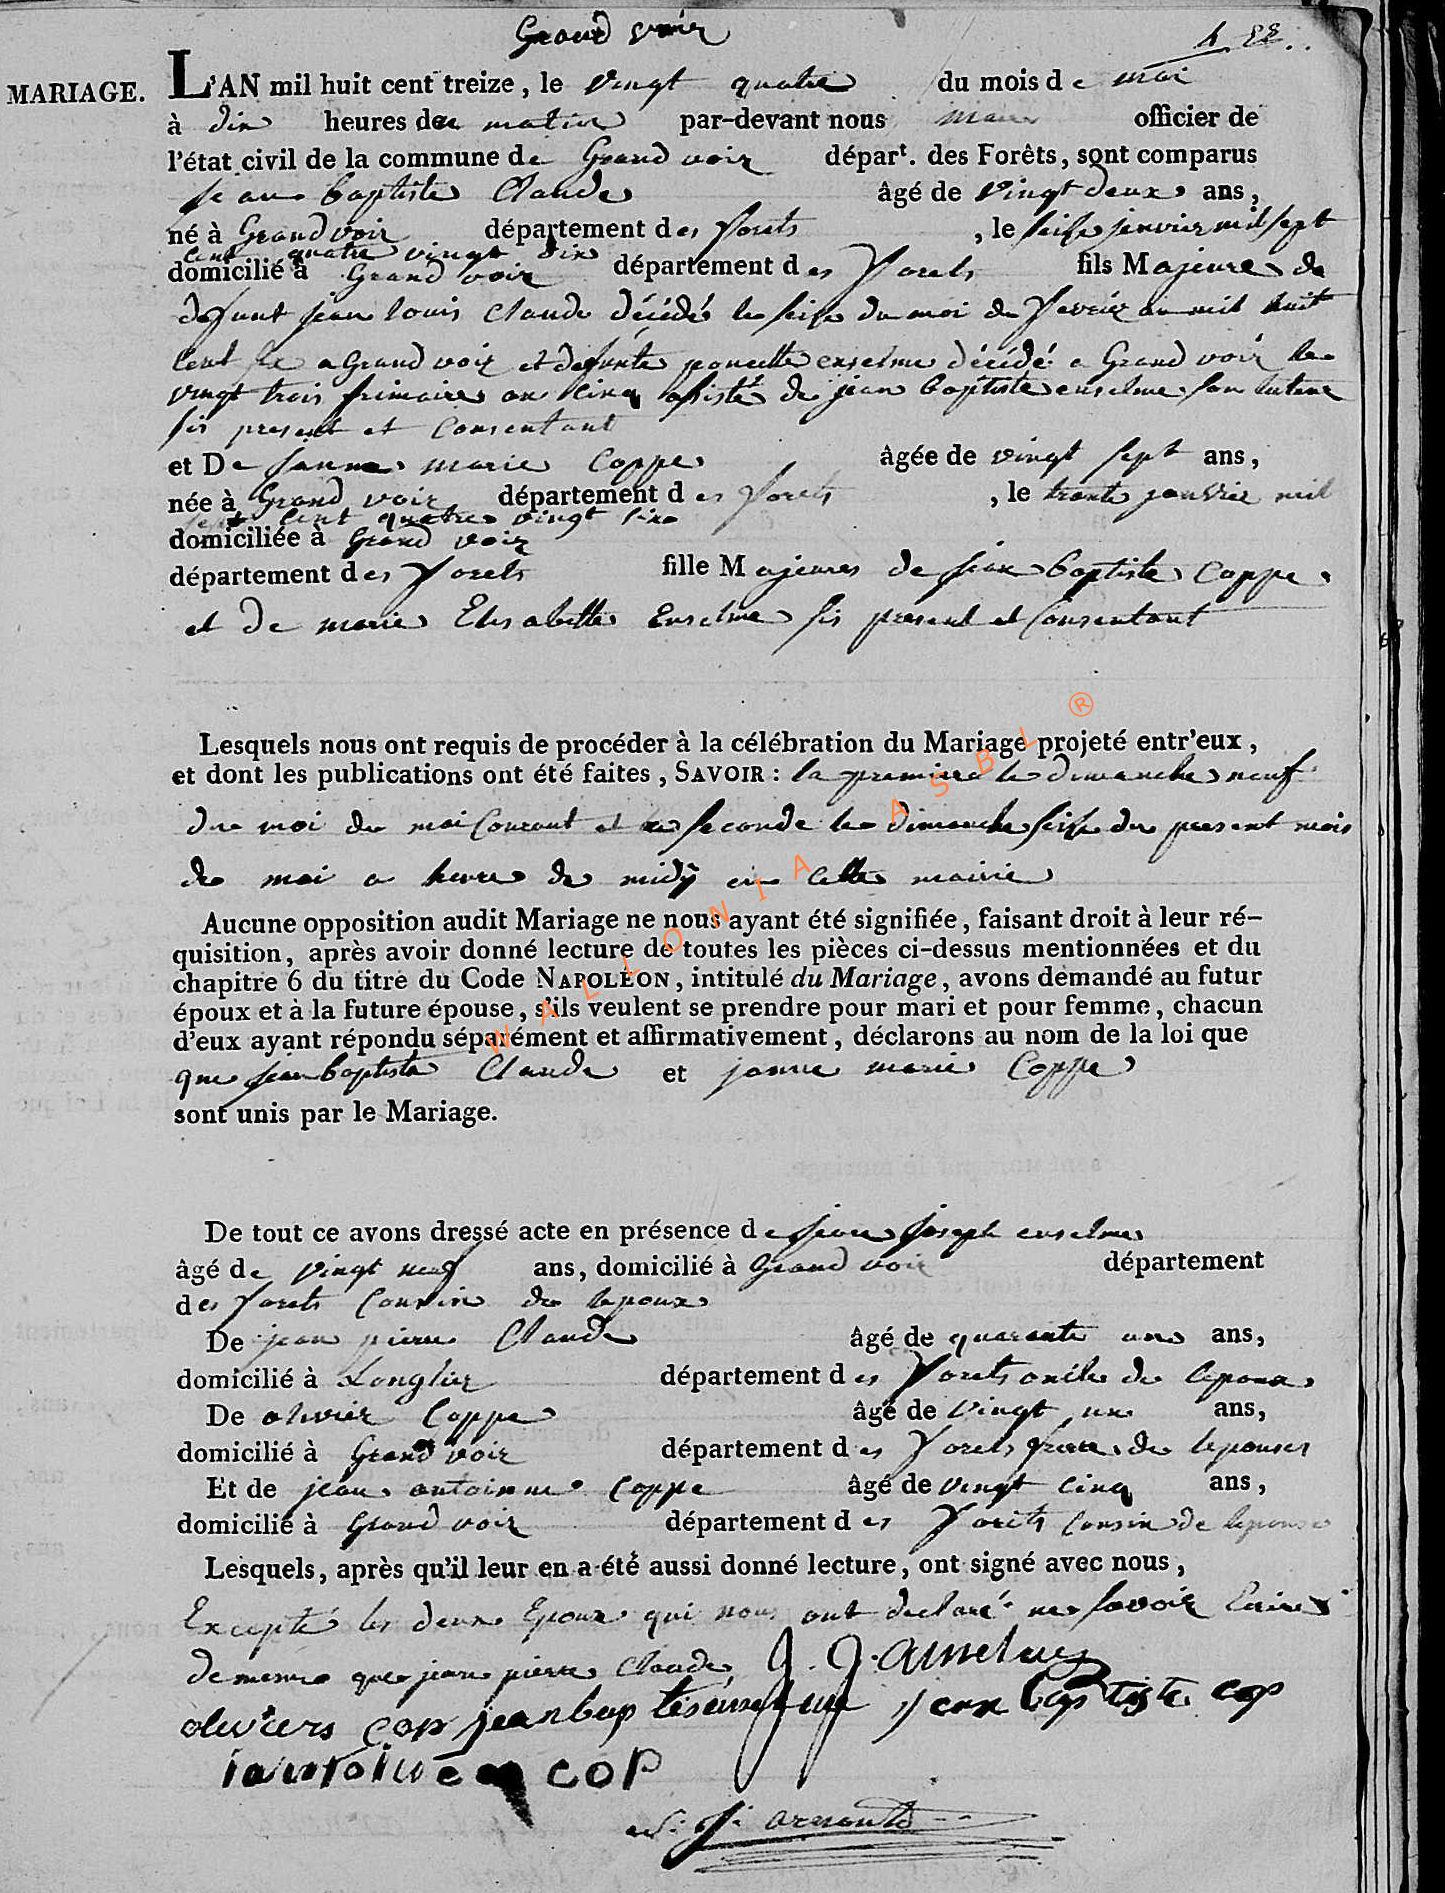 Grand voir
MARIAGE.
L'AN mil huit cent treize, le vingt quatre du mois de mai
à dix heures du matin par-devant nous maire officier de
l'état civil de la commune de Grand voir départ. des Forêts, sont comparus
jean baptiste Claude âgé de vingt deux ans,
né à Grand voir département des forets, le seise janvier mil sept
cent quatre vingt dix
domicilié à Grand voir département des forets fils Majeure de
defunt jean louis Claude décédé le seise du moi de fevrier mil huit
cent a Grand voir et defunte enselme décédé a Grand voir le
vingt trois frimaire an cinq asisté de jean baptiste enselme son tuteur
sis present et Consentant
et De janne marie Coppe âgée de vingt sept ans,
née à Grand voir département des forets, le trente janvier mil
sept cent quatre vingt six
domiciliée à Grand voir
département des forets fille Majeures de jean baptiste Coppe
et de marie Elisabette Enselme sis present et Consentant
Lesquels nous ont requis de procéder à la célébration du Mariage projeté entr'eux,
et dont les publications ont été faites, SAVOIR : la premiere le dimanche neuf
du moi de mai Courant et la seconde le dimanche seise du present mois
de mai a heure de midÿ en cette mairie
Aucune opposition audit Mariage ne nous ayant été signifiée, faisant droit à leur ré-
quisition, après avoir donné lecture de toutes les pièces ci-dessus mentionnées et du
chapitre 6 du titre du Code NAPOLÉON, intitulé du Mariage, avons demandé au futur
époux et à la future épouse, s'ils veulent se prendre pour mari et pour femme, chacun
d'eux ayant répondu séparément et affirmativement, déclarons au nom de la loi que
que jean baptiste Claude et janne marie Coppe
sont unis par le Mariage.
De tout ce avons dressé acte en présence de jean joseph enselme
âgé de vingt neuf ans, domicilié à Grand voir département
des forets Cousin de lepoux
De jean pierre Claude âgé de quarante un ans,
domicilié à Longlier département des forets oncle de lepoux
De olivier Coppe âgé de vingt un ans,
domicilié à Grand voir département des forets frere de lepouses
Et de jean antoinne Coppe âgé de vingt cinq ans,
domicilié à Grand voir département des forets Cousin de lepouse
Lesquels, après qu'il leur en a été aussi donné lecture, ont signé avec nous,
Excepté les deux Epoux qui nous ont declaré ne savoir Ecrire
de meme que jean pierre Claude J. J. Anselme
oliviers cop jean bap tes enselme jean baptiste cop
iantoine cop
arnould
WALLONIA ASBL ®